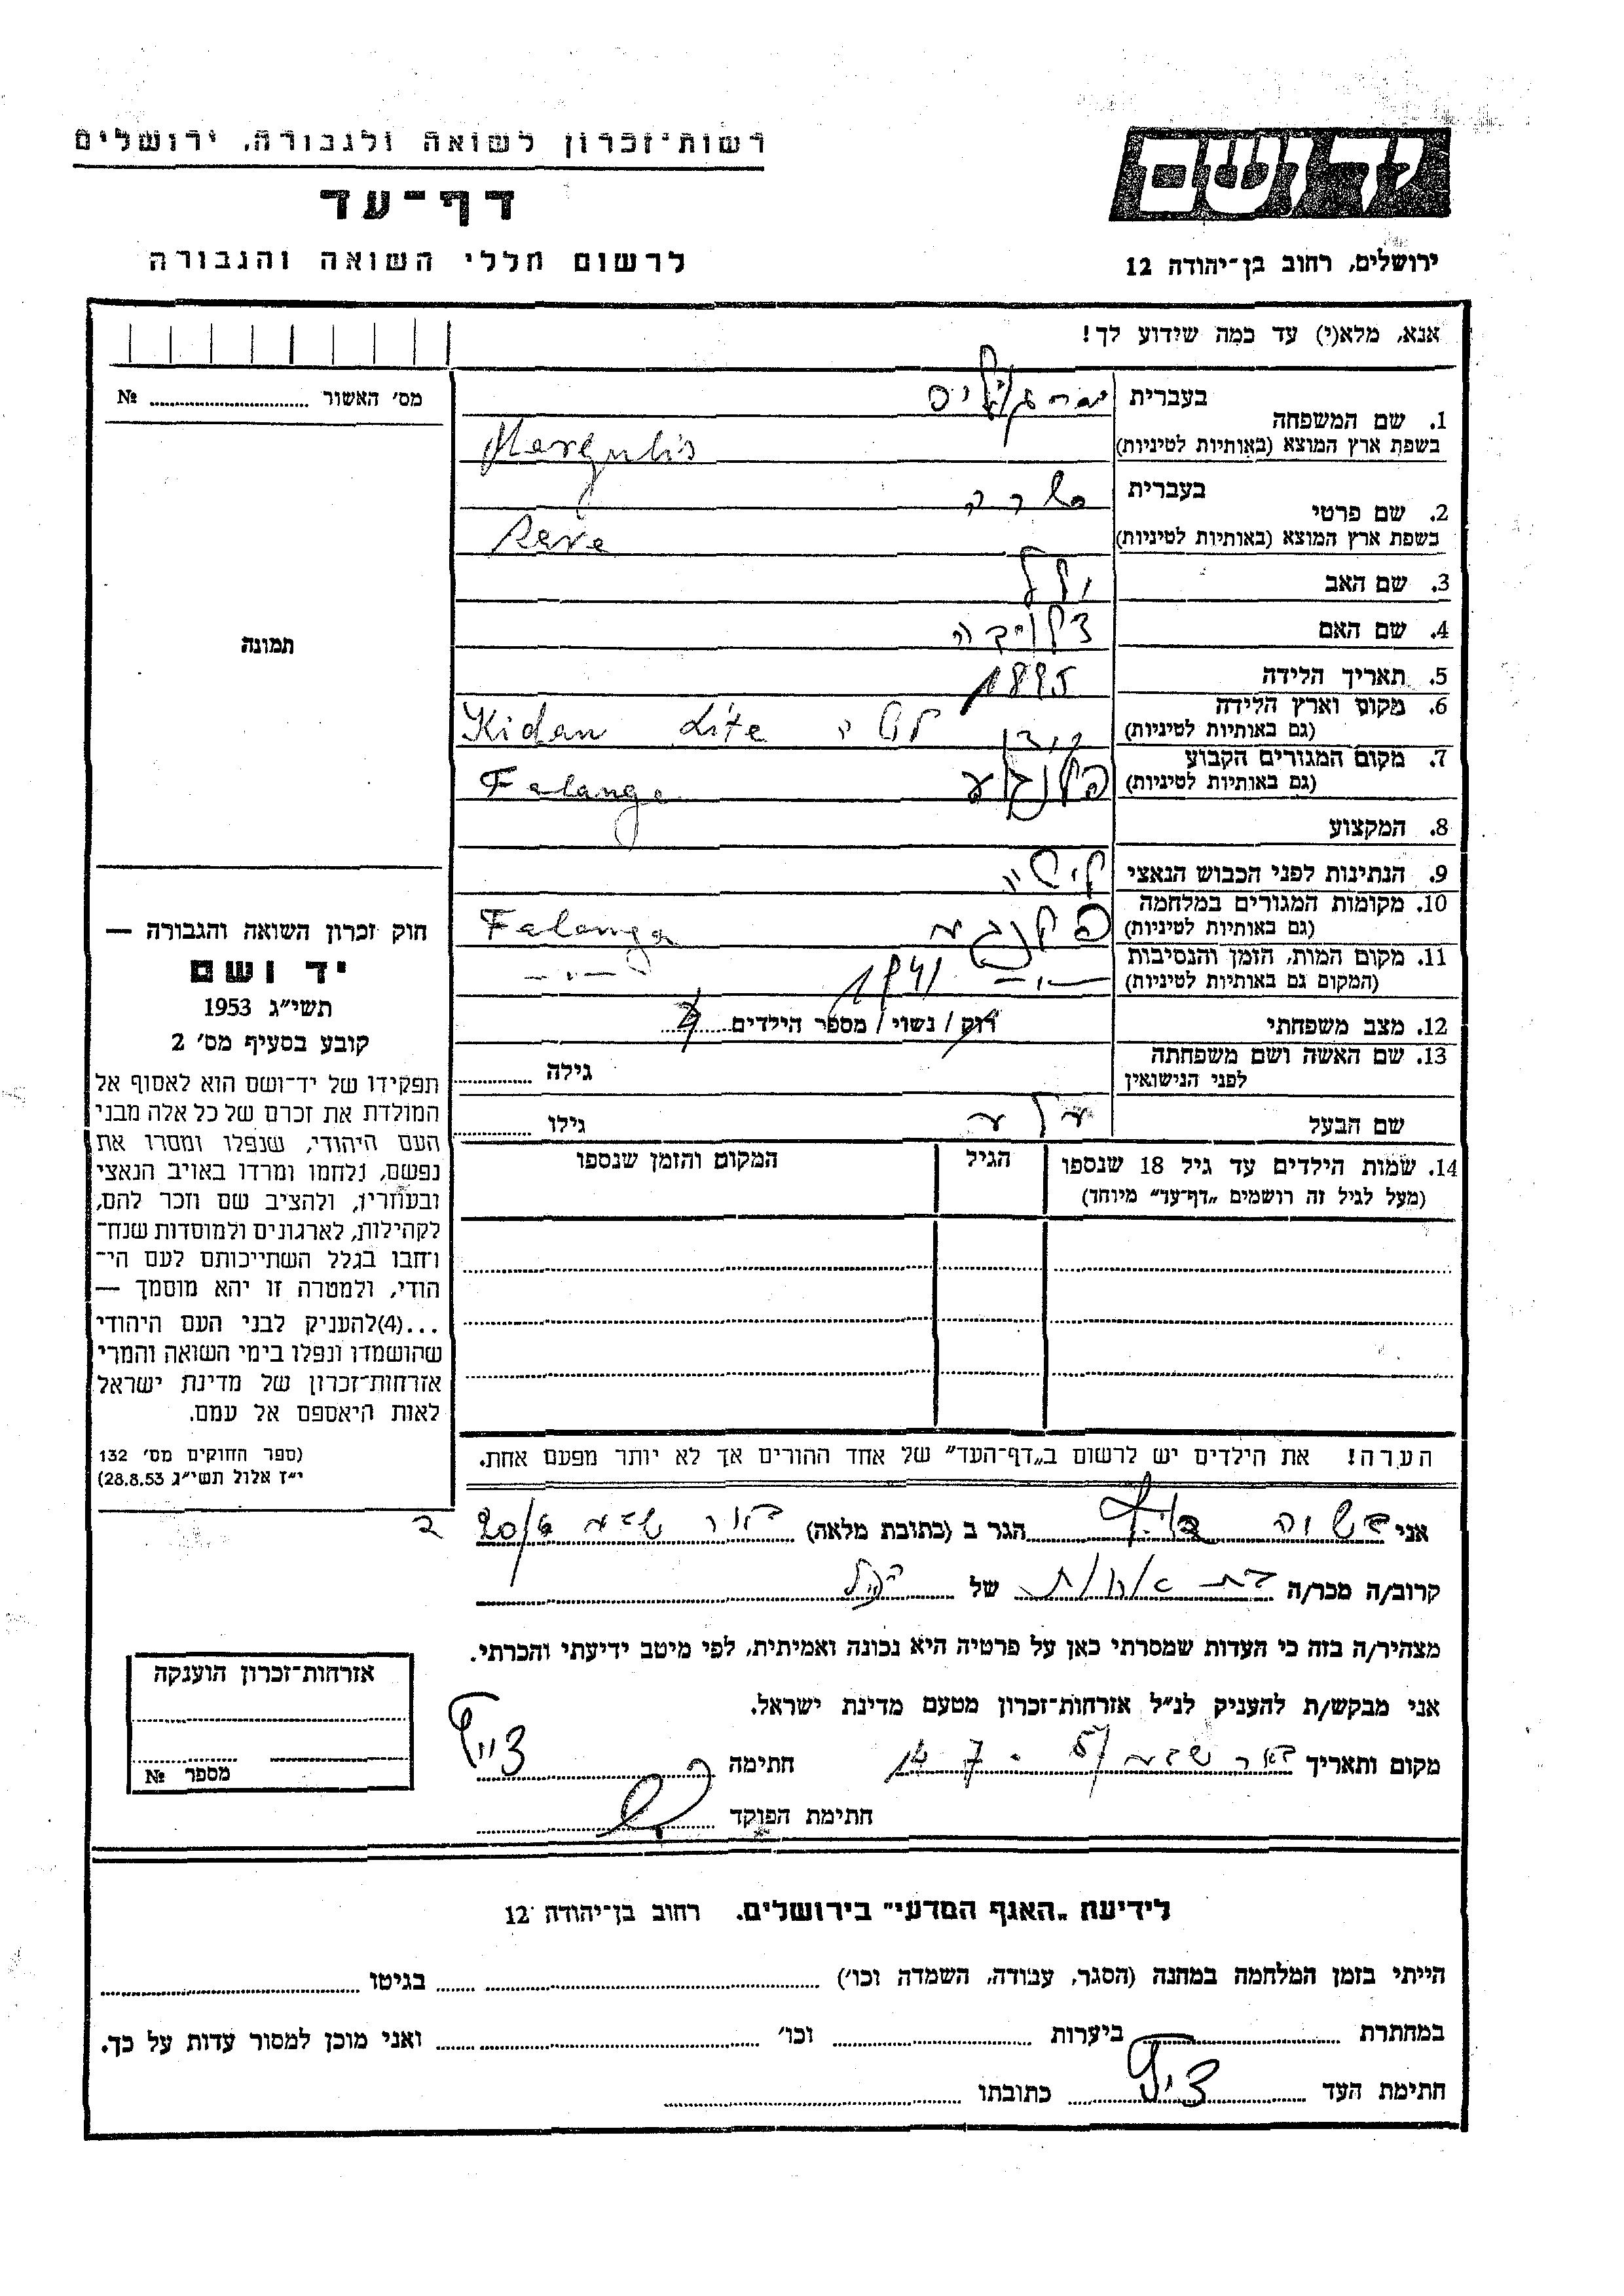 רשות־זכרון לשואה ולגבורה, ירושלים
דף־עד
לרשום חללי השואה והגבורה
יד ושם
ירושלים, רחוב בן־יהודה 12
אנא, מלא(י) עד כמה שידוע לך!
מס׳ האשור № 
1. שם המשפחה
בעברית מרגוליס
בשפת ארץ המוצא (באותיות לטיניות) Margulis
2. שם פרטי
בעברית שרה
בשפת ארץ המוצא (באותיות לטיניות)
3. שם האב
4. שם האם
5. תאריך הלידה 1895
6. מקום וארץ הלידה
(גם באותיות לטיניות) Kidan Lite
7. מקום המגורים הקבוע
(גם באותיות לטיניות) Falanga
8. המקצוע
9. הנתינות לפני הכבוש הנאצי ליטה
10. מקומות המגורים במלחמה
(גם באותיות לטיניות) Falanga
11. מקום המות, הזמן והנסיבות
(המקום גם באותיות לטיניות) 1941
12. מצב משפחתי רוק / נשוי / מספר הילדים
13. שם האשה ושם משפחתה
לפני הנישואין גילה
שם הבעל גילו
14. שמות הילדים עד גיל 18 שנספו הגיל המקום והזמן שנספו
(מעל לגיל זה רושמים „דף־עד״ מיוחד)
הערה! את הילדים יש לרשום ב„דף־העד״ של אחד ההורים אך לא יותר מפעם אחת.
תמונה
חוק זכרון השואה והגבורה —
יד ושם
תשי״ג 1953
קובע בסעיף מס׳ 2
תפקידו של יד־ושם הוא לאסוף אל
המולדת את זכרם של כל אלה מבני
העם היהודי, שנפלו ומסרו את
נפשם, נלחמו ומרדו באויב הנאצי
ובעוזריו, ולהציב שם וזכר להם,
לקהילות, לארגונים ולמוסדות שנח־
רחבו בגלל השתייכותם לעם הי־
הודי, ולמטרה זו יהא מוסמך —
...(4)להעניק לבני העם היהודי
שהושמדו ונפלו בימי השואה והמרי
אזרחות־זכרון של מדינת ישראל
לאות היאספם אל עמם.
(ספר החוקים מס׳ 132
י״ז אלול תשי״ג 28.8.53)
אני הגר ב (כתובת מלאה) באר שבע
קרוב/ה מכר/ה בת אחות של
מצהיר/ה בזה כי העדות שמסרתי כאן על פרטיה היא נכונה ואמיתית, לפי מיטב ידיעתי והכרתי.
אני מבקש/ת להעניק לנ״ל אזרחות־זכרון מטעם מדינת ישראל.
מקום ותאריך באר שבע חתימה
חתימת הפוקד
אזרחות־זכרון הוענקה
מספר №
לידיעת „האגף המדעי״ בירושלים. רחוב בן־יהודה 12
הייתי בזמן המלחמה במחנה (הסגר, עבודה, השמדה וכו׳) בגיטו
במחתרת ביערות וכו׳ ואני מוכן למסור עדות על כך.
חתימת העד כתובתו